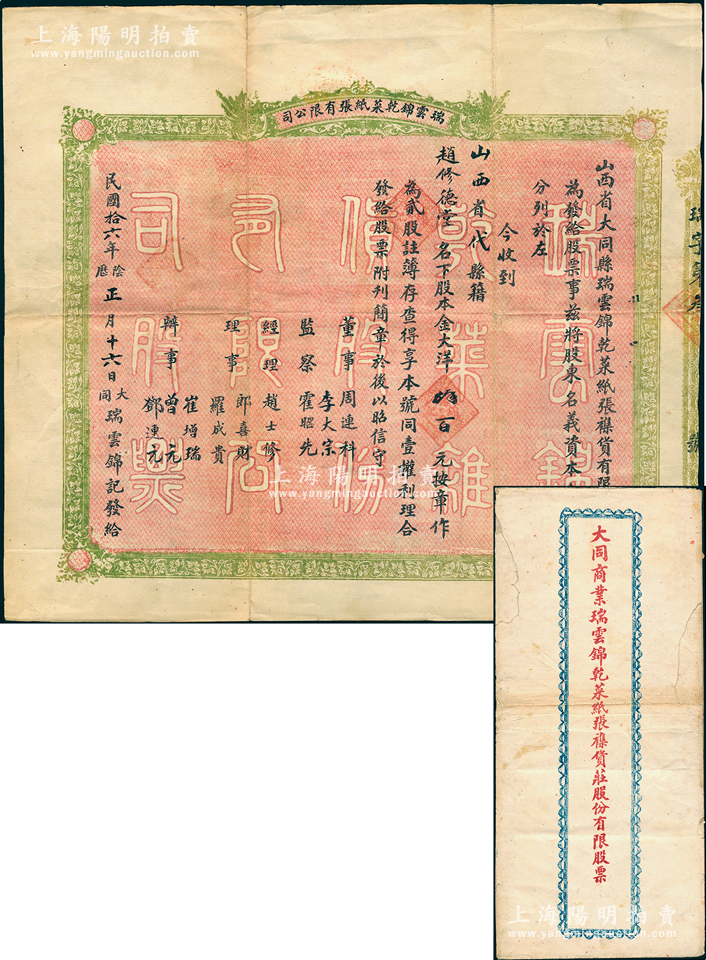 上海陽明拍賣
www.yangmingauction.com
瑞雲錦乾菜紙張有限公司
山西省大同縣瑞雲錦乾菜紙張襍貨有限
為發給股票事兹將股東名義資本
分列於左
今收到
山西省代縣籍
趙修德堂名下股本金大洋 百元按章作
為貳股註簿存查得享本號同壹權利理合
發給股票附列簡章於後以昭信守
董事 周連科
李大宗
監察 霍昭先
經理 趙士修
理事 郎喜財
羅成貴
辦事 崔增瑞
曾元
鄧連元
民國拾六年陰歷正月十六日大同瑞雲錦記發給
瑞字第
號
瑞雲錦
乾菜雜
貨股份
有限公
司股票
上海陽明拍賣
www.yangmingauction.com
大同商業瑞雲錦乾菜紙張襍貨莊股份有限股票
上海陽明拍賣
www.yangmingauction.com